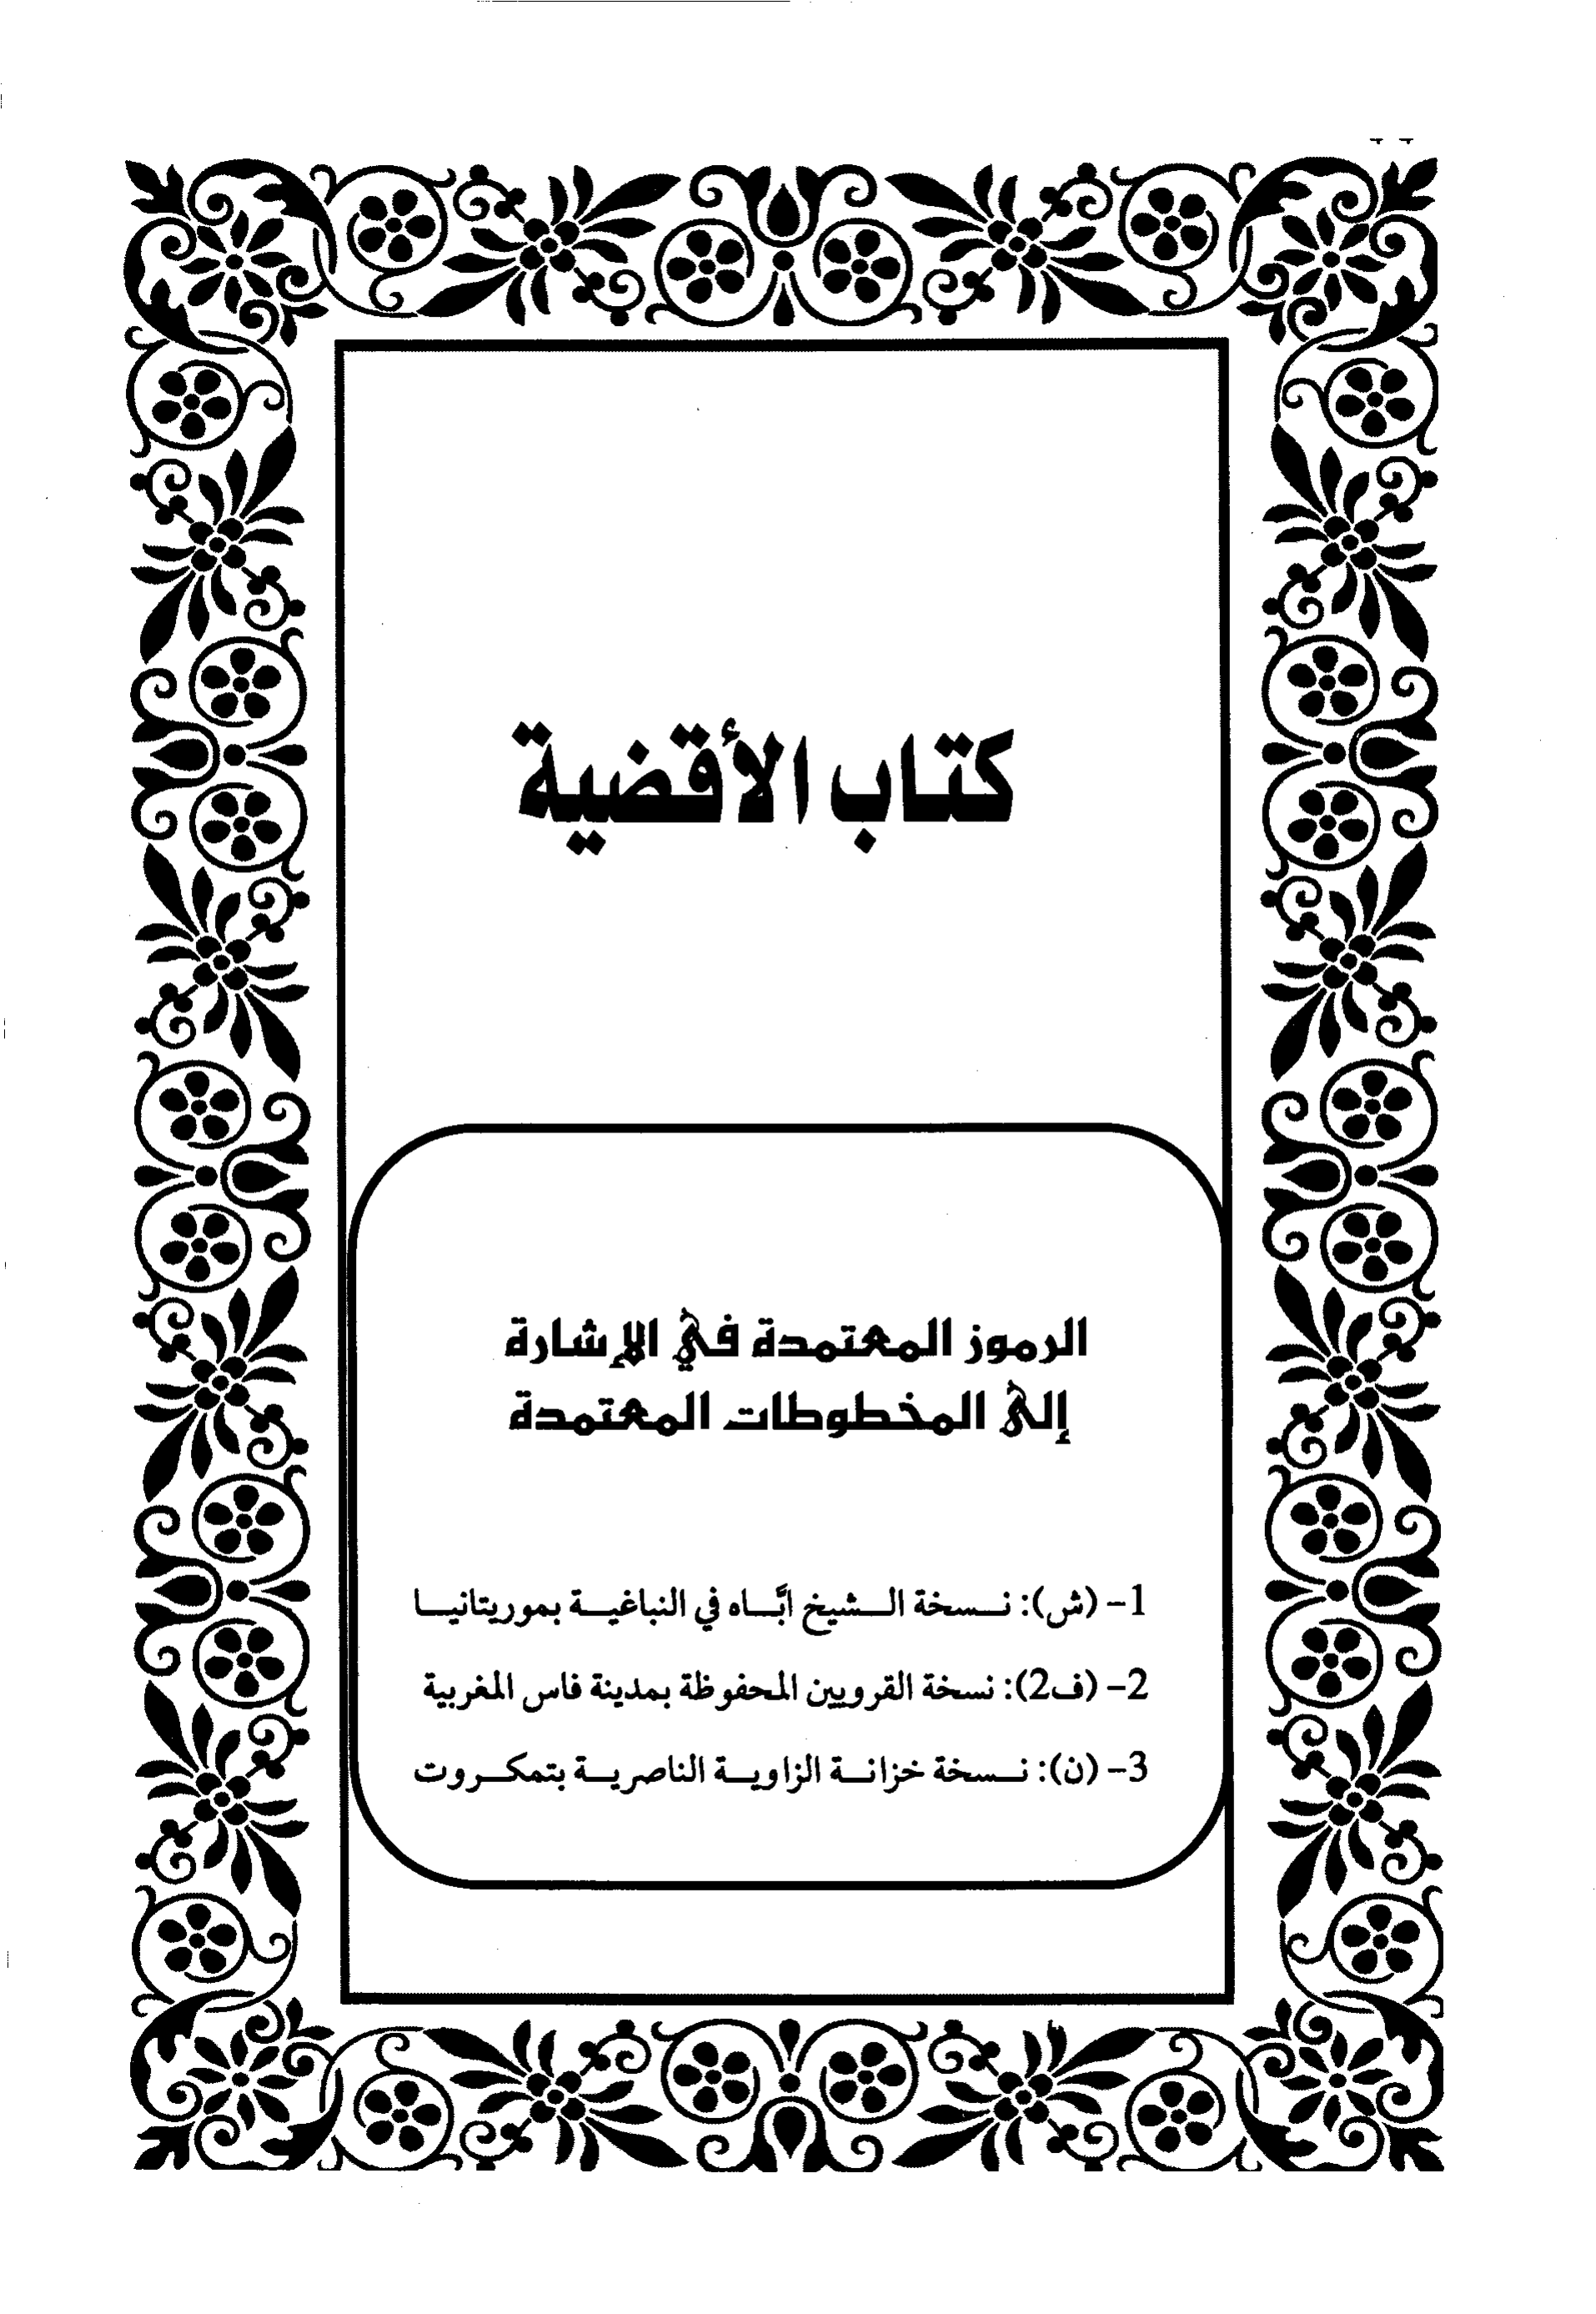 كتاب الأقضية
الرموز المعتمدة في الإشارة
إلى المخطوطات المعتمدة
1- (ش): نسخة الشيخ ابَّاه في النباغية بموريتانيا
2- (ف2): نسخة القرويين المحفوظة بمدينة فاس المغربية
3- (ن): نسخة خزانة الزاوية الناصرية بتمكروت